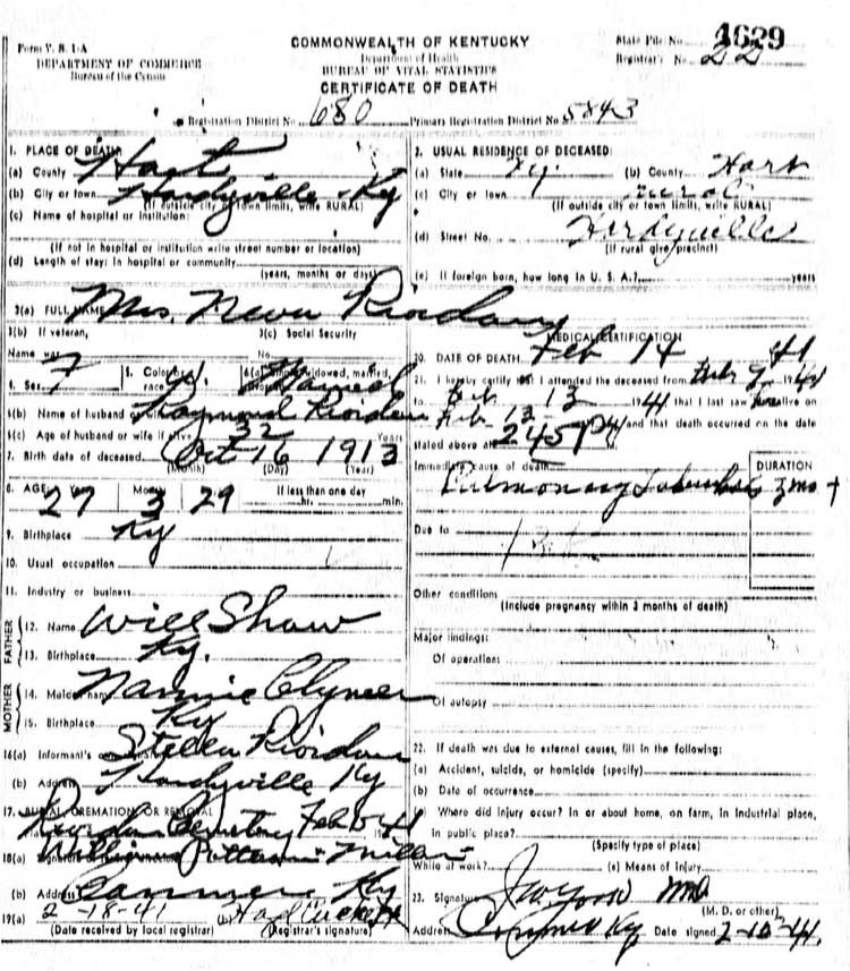 Form V. S. 1-A
DEPARTMENT OF COMMERCE
Bureau of the Census
COMMONWEALTH OF KENTUCKY
Department of Health
BUREAU OF VITAL STATISTICS
CERTIFICATE OF DEATH
State File No. 4629
Registrar's No. 22
Registration District No. 680 Primary Registration District No. 5843
1. PLACE OF DEATH:
(a) County Hart
(b) City or town Hardyville Ky
(If outside city or town limits, write RURAL)
(c) Name of hospital or institution:
(If not in hospital or institution write street number or location)
(d) Length of stay: In hospital or community
(years, months or days)
2. USUAL RESIDENCE OF DECEASED:
(a) State Ky. (b) County Hart
(c) City or town rural
(If outside city or town limits, write RURAL)
(d) Street No. Hardyville
(If rural give precinct)
(e) If foreign born, how long in U. S. A.? years
3(a) FULL NAME Mrs. Riordan
3(b) If veteran, 3(c) Social Security
Name war No.
4. Sex F 5. Color or race W. 6(a) widowed, married, Married
6(b) Name of husband or wife Raymond Riordan
6(c) Age of husband or wife if alive 32 Years
7. Birth date of deceased Oct 16 1913
(Month) (Day) (Year)
8. AGE: Years Months If less than one day
27 3 29 hr. min.
9. Birthplace Ky
10. Usual occupation
11. Industry or business
FATHER
12. Name Will Shaw
13. Birthplace Ky.
MOTHER
14. Maiden name Nannie
15. Birthplace Ky
16(a) Informant's Stella Riordan
(b) Address Hardyville Ky
17. BURIAL, CREMATION OR REMOVAL
Riordan Cemetery Feb 41
18(a)
(b) Address Canmer Ky
19(a) 2-18-41
(Date received by local registrar) (Registrar's signature)
MEDICAL CERTIFICATION
20. DATE OF DEATH Feb 14 41
21. I hereby certify that I attended the deceased from Feb 1941
to Feb 13 1941 that I last saw alive on
Feb 13 and that death occurred on the date
stated above at 245 PM
Immediate cause of death DURATION
Pulmonary Tuberculosis 3 mo +
Due to
Other conditions
(Include pregnancy within 3 months of death)
Major findings:
Of operations
Of autopsy
22. If death was due to external causes, fill in the following:
(a) Accident, suicide, or homicide (specify)
(b) Date of occurrence
(c) Where did injury occur? In or about home, on farm, in industrial place,
in public place?
(Specify type of place)
While at work? (e) Means of Injury
23. Signature MD
(M. D. or other)
Address Canmer Ky Date signed